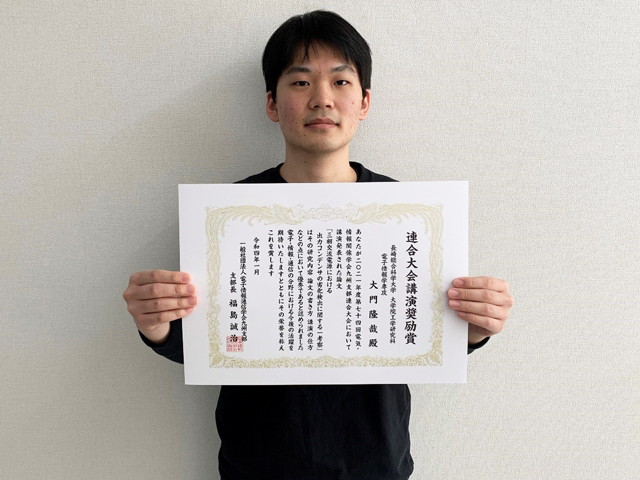 連合大会講演奨励賞
長崎総合科学大学 大学院工学研究科
電子情報学専攻
大門 隆哉 殿
あなたが二〇二一年度第七十四回電気・
情報関係学会九州支部連合大会において
講演発表された論文
「三相交流電源における
出力コンデンサの劣化検出に関する一考察」
はその研究内容・論文の書き方・講演の仕方
などの点において優秀であると認められました
電子・情報・通信の分野における今後の活躍を
期待いたしますとともにその栄誉を称え
これを賞します
令和四年一月
一般社団法人電子情報通信学会九州支部
支部長 福島 誠治